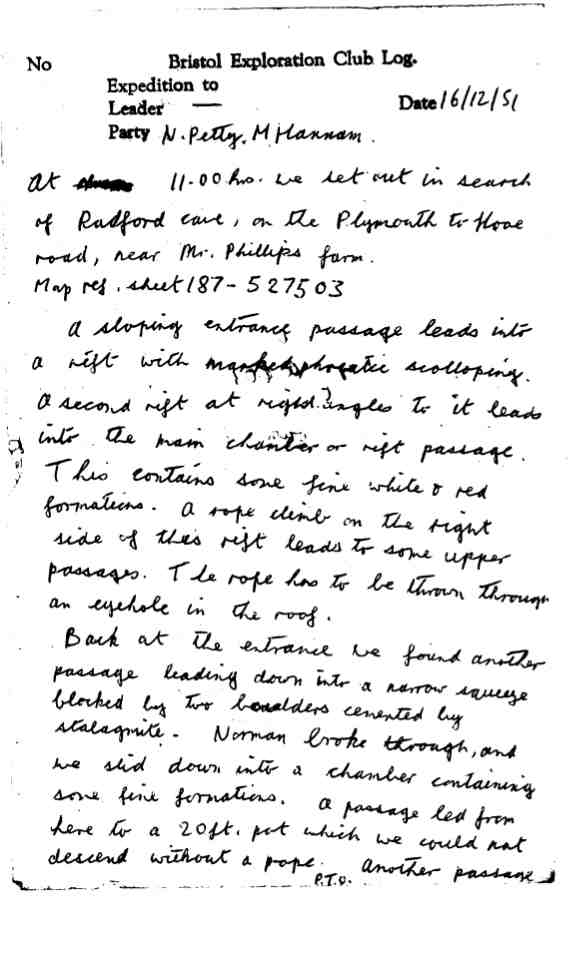 No
Bristol Exploration Club Log.
Expedition to
Leader —
Date 16/12/51
Party N. Petty, M Hannam.
At 11.00 hrs. we set out in search
of Radford cave, on the Plymouth to Hove
road, near Mr. Phillips farm.
Map ref. sheet 187 - 527503
A sloping entrance passage leads into
a rift with marked phreatic scolloping.
A second rift at right angles to it leads
into the main chamber or rift passage.
This contains some fine white & red
formations. A rope climb on the right
side of this rift leads to some upper
passages. The rope has to be thrown through
an eyehole in the roof.
Back at the entrance we found another
passage leading down into a narrow squeeze
blocked by two boulders cemented by
stalagmite. Norman broke through, and
we slid down into a chamber containing
some fine formations. A passage led from
here to a 20ft. pot which we could not
descend without a rope. Another passage
P.T.O.